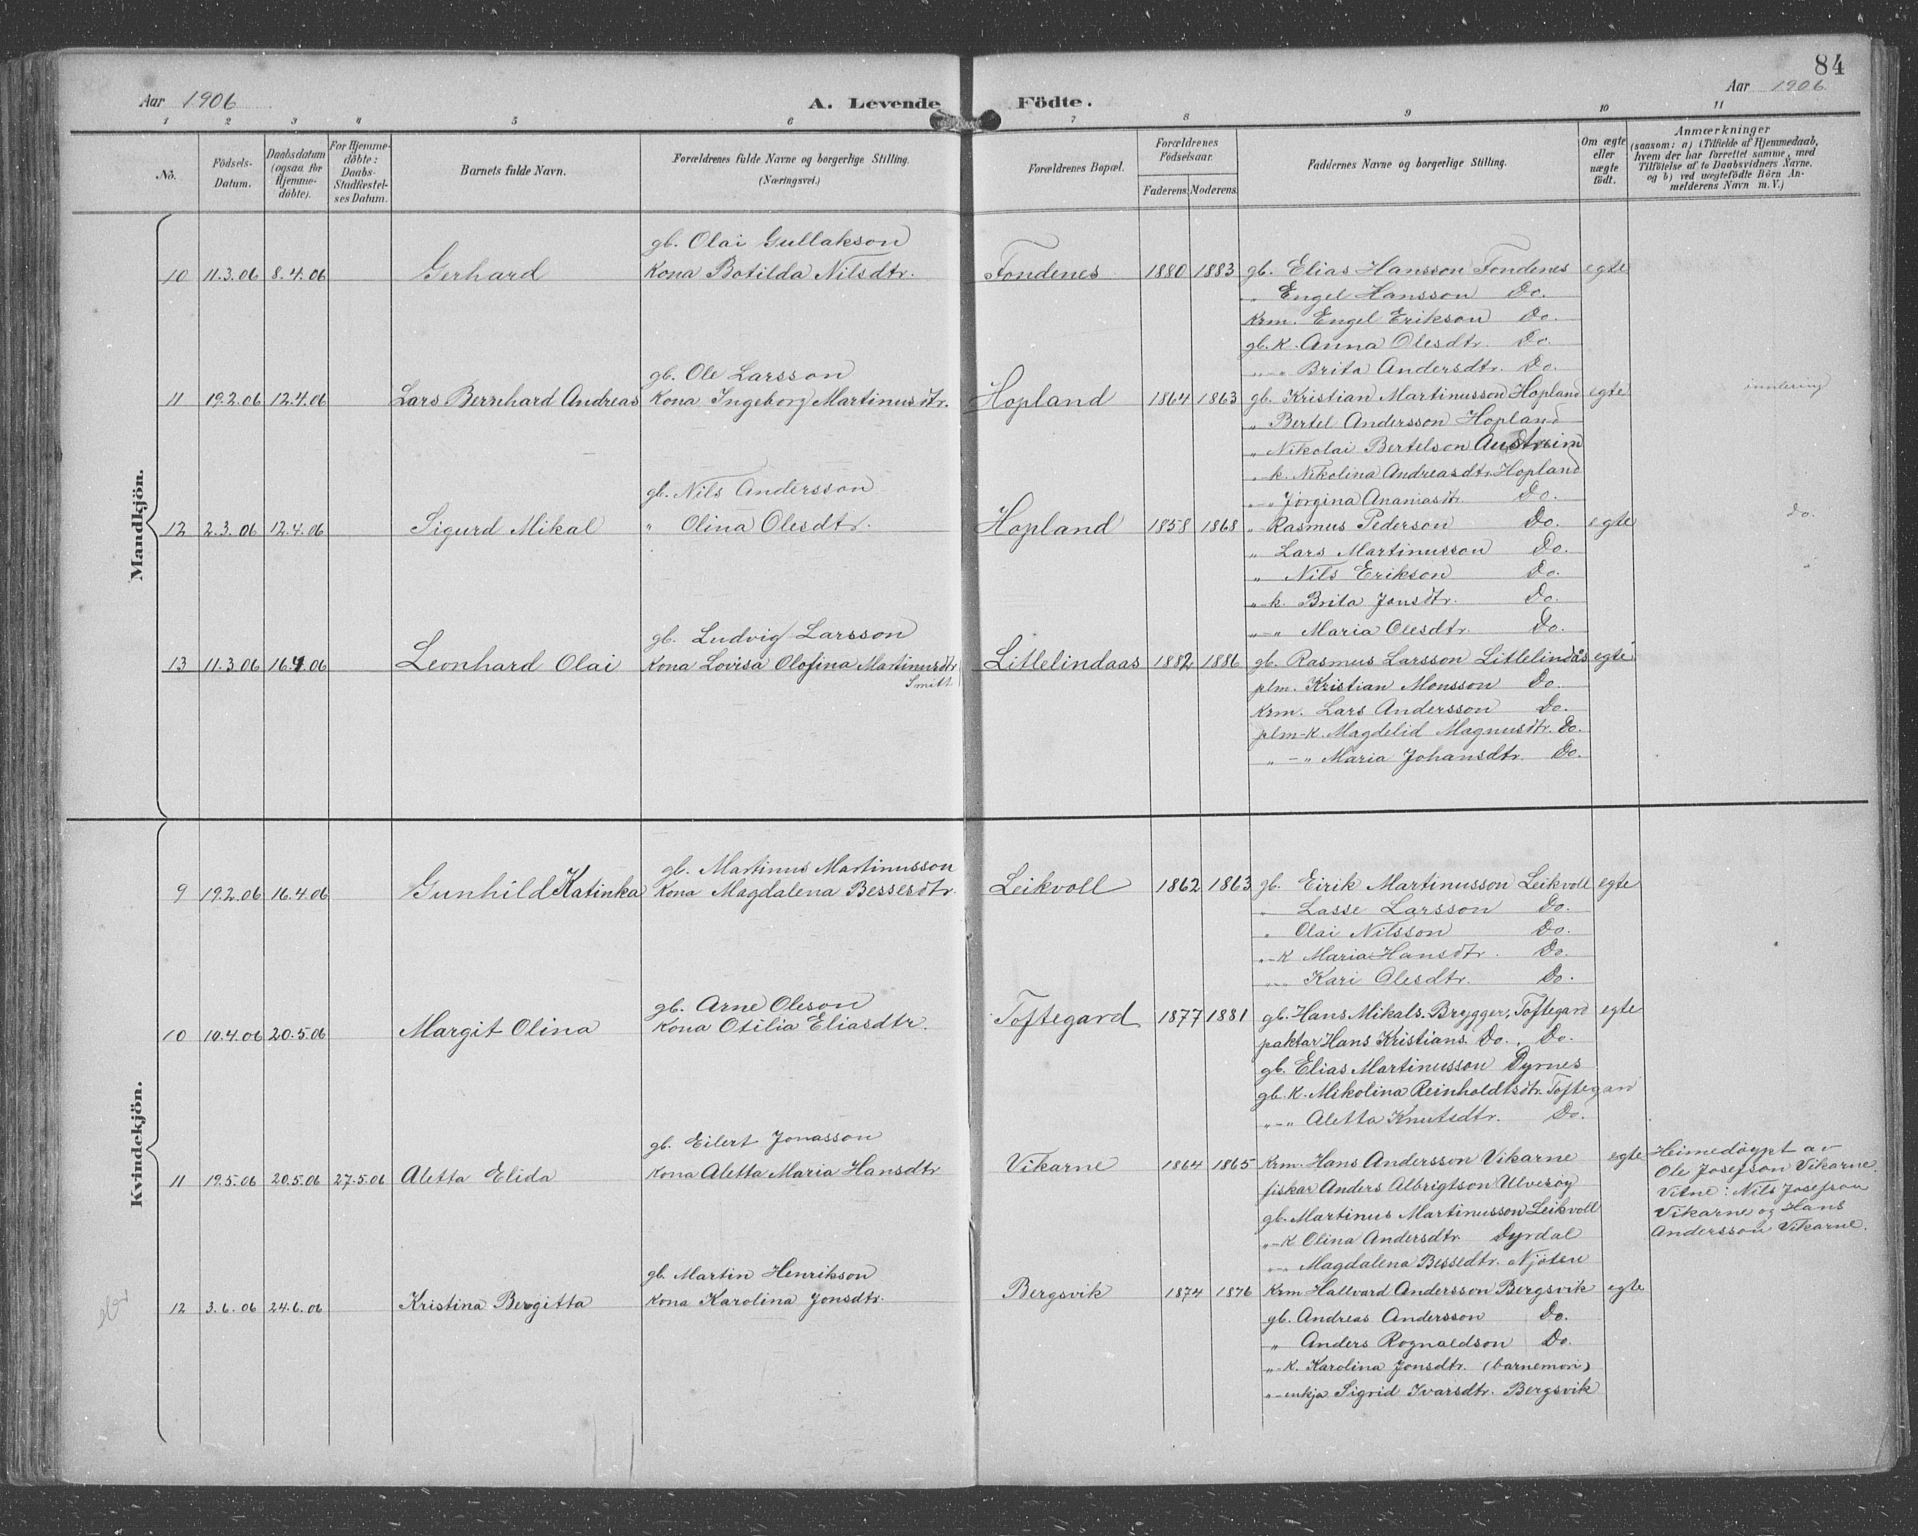 84
Aar 1906
A. Levende Födte.
Aar 1906.
1 2 3 4 5 6 7 8 9 10 11
No.
Födsels-Datum.
Daabsdatum (ogsaa for Hjemmedöbte).
For Hjemmedöbte: Daabs-Stadfestelses Datum.
Barnets fulde Navn.
Forældrenes fulde Navne og borgerlige Stilling. (Næringsvei.)
Forældrenes Bopæl.
Forældrenes Födselsaar.
Faderens. Moderens.
Faddernes Navne og borgerlige Stilling.
Om ægte eller uægte födt.
Anmærkninger
(saasom: a) i Tilfælde af Hjemmedaab, hvem der har forrettet samme, med Tilföielse af to Daabsvidners Navne. og b) ved uægtefödte Börn Anmelderens Navn m. V.)
Mandkjön.
gb. Olai Gullakson
10 11.3.06 8.4.06 Gerhard Kona Botilda Nilsdtr. Fondenes 1880 1883 gb. Elias Hansson Fondenes egte
„ Engel Hansson Do.
Krm. Engel Erikson Do.
gb. K. Anna Olesdtr. Do
„-„ Brita Andersdtr. Do.
gb. Ole Larsson
11 19.2.06 12.4.06 Lars Bernhard Andreas Kona Ingeborg Martinusdtr. Hopland 1864 1863 gb. Kristian Martinusson Hopland egte
„ Bertel Andersson Hopland
„ Nikolai Bertelson Austreim
„ k. Nikolina Andreasdtr Hopland
„-„ Jörgina Ananiasdtr Do.
gb. Nils Andersson
12 2.3.06 12.4.06 Sigurd Mikal „ Olina Olesdtr. Hopland 1858 1868 „ Rasmus Pederson Do. egte do.
„ Lars Martinusson Do.
„ Nils Erikson Do.
„-k. Brita Jonsdtr. Do.
„-„ Maria Olesdtr. Do.
gb. Ludvig Larsson
13 11.3.06 16.4.06 Leonhard Olai Kona Lovisa Olofina Martinusdtr Litlelindaas 1882 1886 gb. Rasmus Larsson Litlelindås egte
Smitt
plm. Kristian Monsson Do.
Krm. Lars Andersson Do.
plm-K. Magdelid Magnusdtr. Do.
„ - „ Maria Johansdtr. Do.
Kvindekjön.
gb. Martinus Martinusson
9 19.2.06 16.4.06 Gunhild Katinka Kona Magdalena Bessesdtr. Leikvoll 1862 1863 gb. Eirik Martinusson Leikvoll egte
„ Lasse Larsson Do.
„ Olai Nilsson Do.
„-K Maria Hansdtr. Do.
„-„ Kari Olesdtr. Do.
gb. Arne Oleson
10 10.4.06 20.5.06 Margit Olina Kona Otilia Eliasdtr. Toftegard 1877 1881 gb. Hans Mikals. Brygger, Toftegard egte
paktar Hans Kristians. Do., Do.
gb. Elias Martinusson Dyrnes
gb. K. Mikolina Reinholdtsdtr. Toftegard
„-„ Aletta Knutsdtr. Do.
gb. Eilert Jonasson
11 19.5.06 20.5.06 27.5.06 Aletta Elida Kona Aletta Maria Hansdtr Vikarne 1864 1865 Krm. Hans Andersson Vikarne egte
fiskar Anders Albrigtson Ulveröy
gb. Martinus Martinusson Leikvoll
„-K Olina Andersdtr Dyrdal
„-„ Magdalena Bessedtr. Njöten
Heimedöypt av
Ole Josefson Vikarne.
Vitne: Nils Josefson
Vikarne og Hans
Andersson Vikarne.
gb. Martin Henrikson
12 3.6.06 24.6.06 Kristina Bergitta Kona Karolina Jonsdtr. Bergsvik 1874 1876 Krm Hallvard Andersson Bergsvik egte
gb. Andreas Andersson Do.
„ Anders Rognaldson Do.
„-K. Karolina Jonsdtr. (barnemori)
„-enkja Sigrid Ivarsdtr. Bergsvik